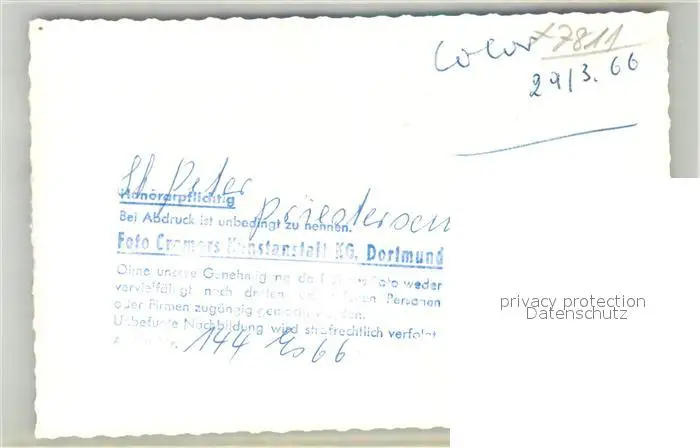 Color x 7811
29/3. 66
St. Peter
Honorarpflichtig
Bei Abdruck ist unbedingt zu nennen.
Foto Cramers Kunstanstalt KG, Dortmund
Ohne unsere Genehmigung darf weder
vervielfältigt noch dritten Personen
oder Firmen zugängig gemacht werden.
Unbefugte Nachbildung wird strafrechtlich verfolgt
144 66
privacy protection
Datenschutz